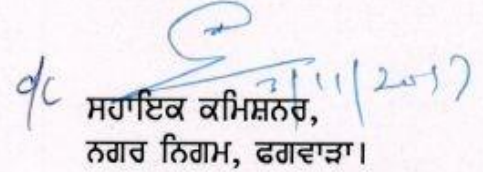 o/c 3/11/2017
ਸਹਾਇਕ ਕਮਿਸ਼ਨਰ,
ਨਗਰ ਨਿਗਮ, ਫਗਵਾੜਾ।